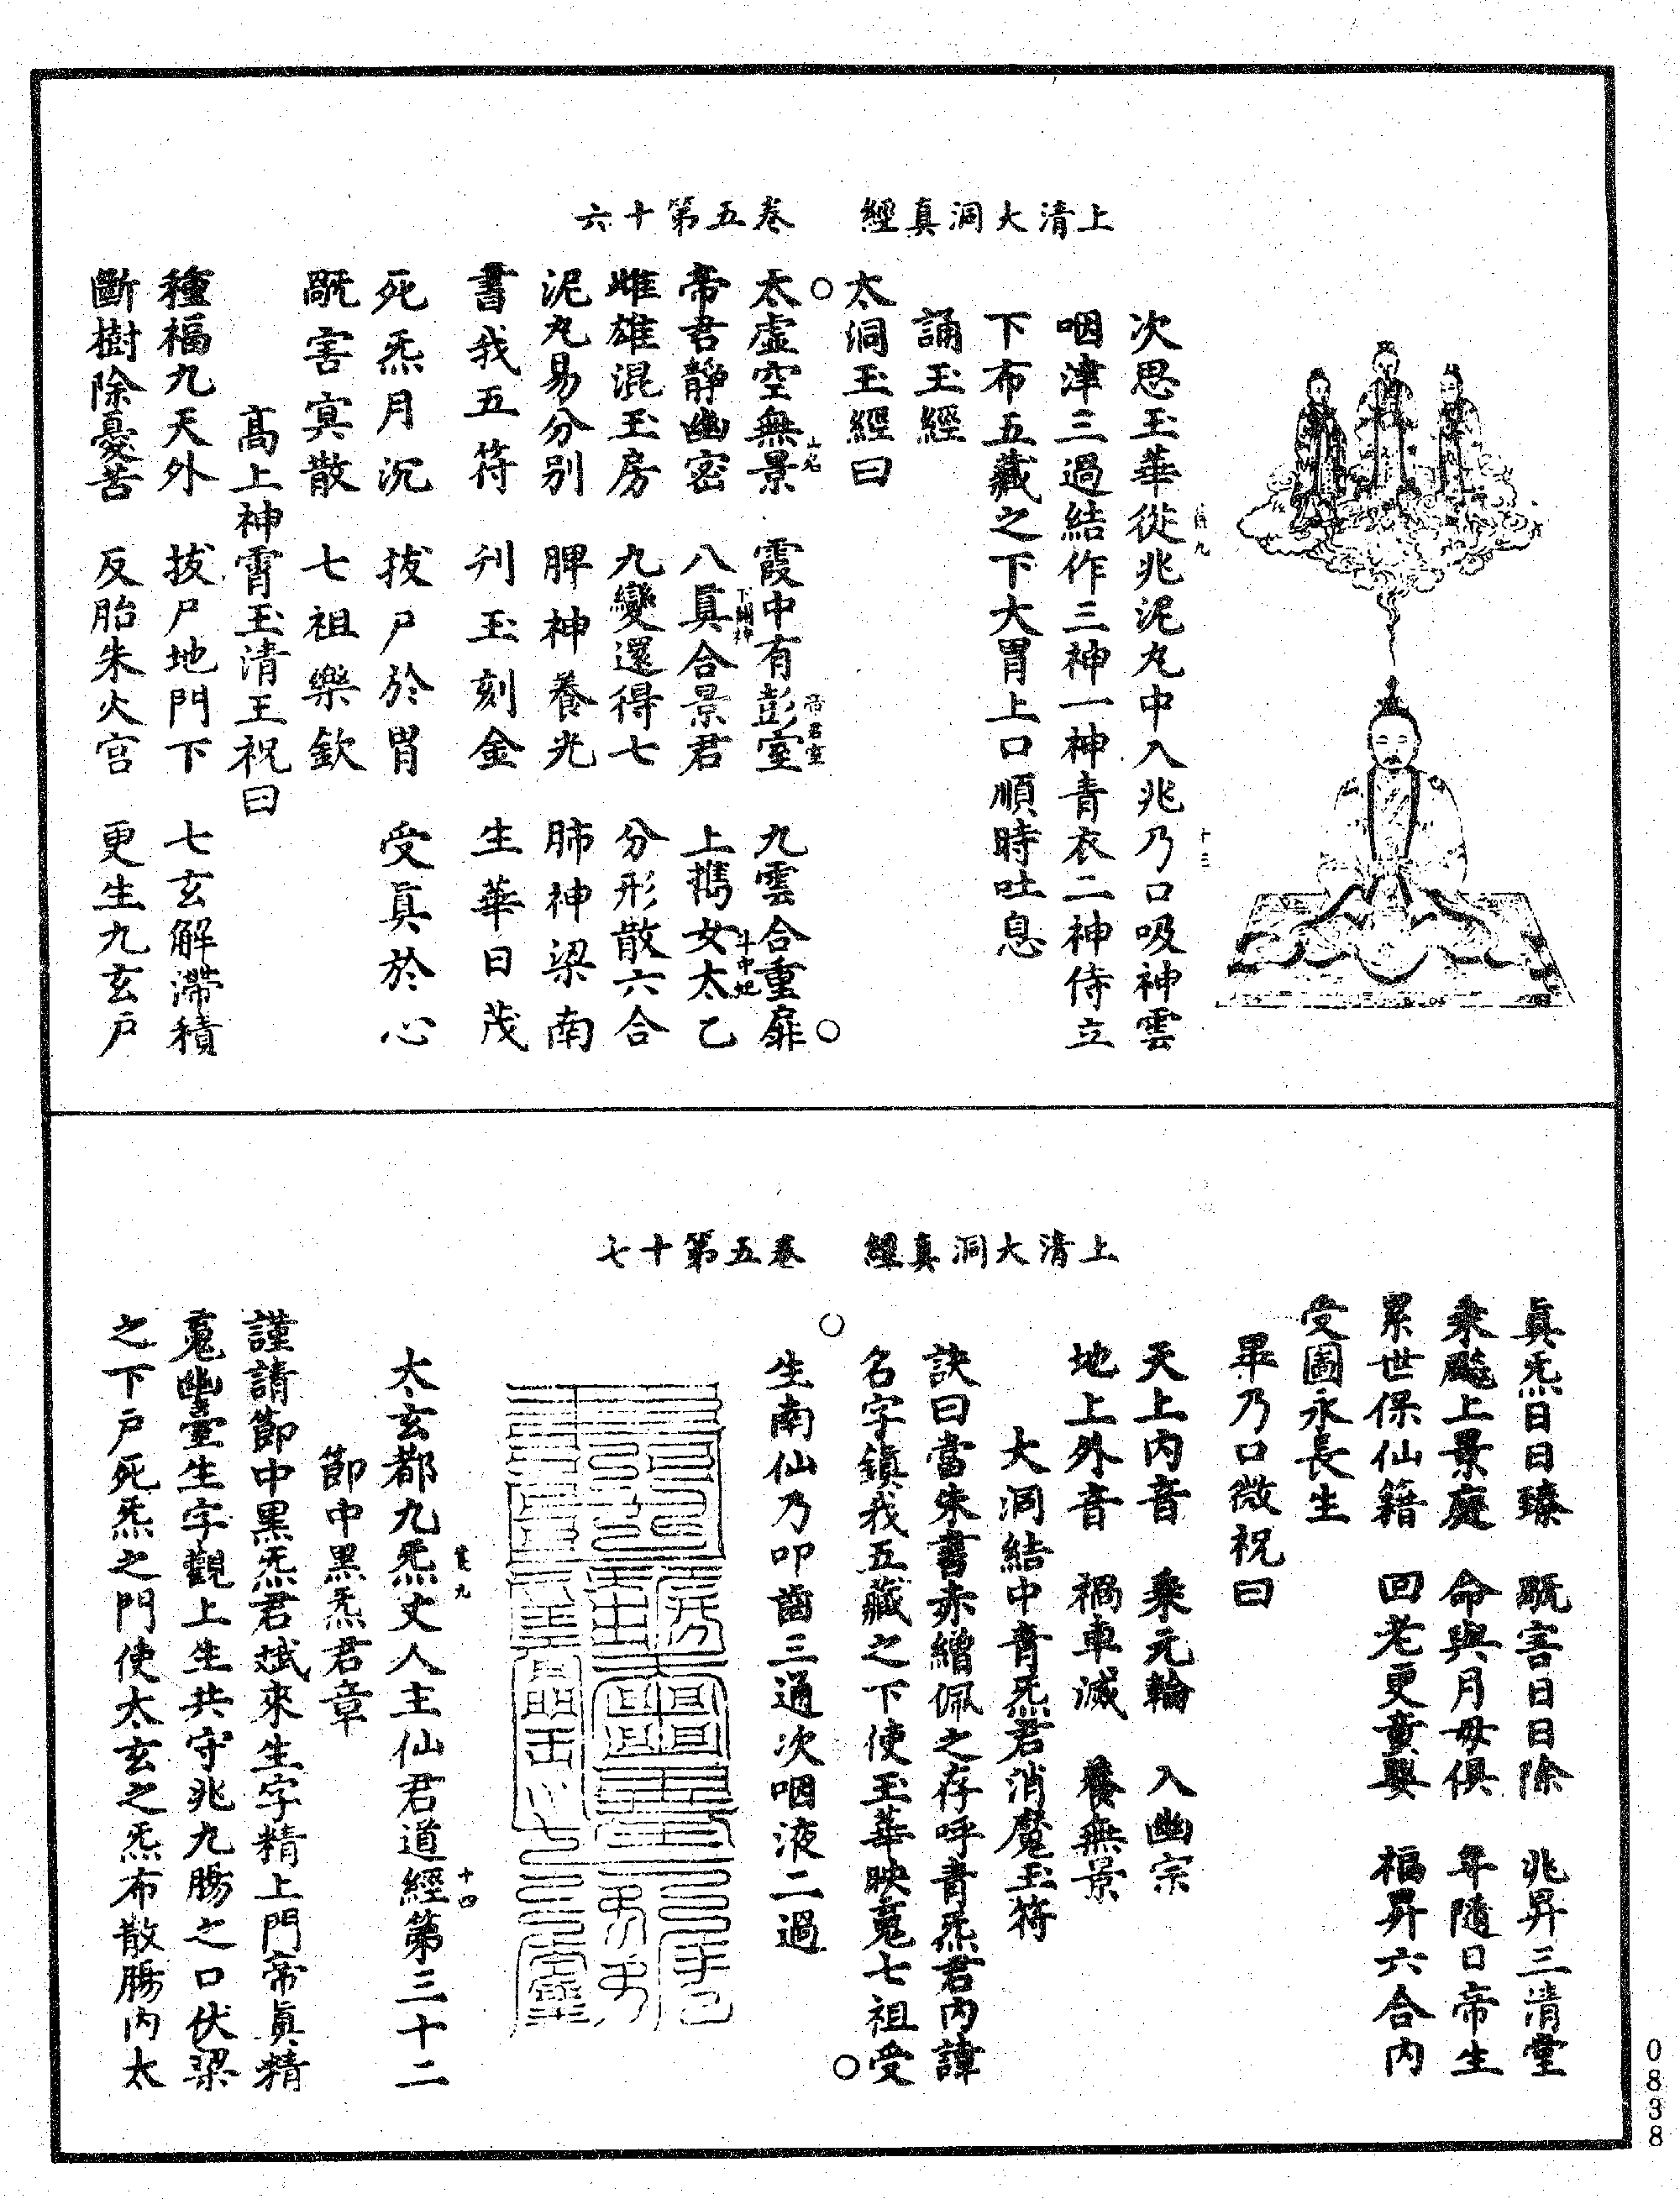 上清大洞真經　卷五第十六
次思玉華從兆泥丸中入兆乃口吸神雲
咽津三過結作三神一神青衣二神侍立
下布五藏之下大胃上口順時吐息
誦玉經
太洞玉經曰
太虛空無景　霞中有彭室　九雲合重扉
山名　帝君室
帝君靜幽密　八真合景君　上攜女太乙
下關神　斗中妃
雌雄混玉房　九變還得七　分形散六合
泥丸易分别　脾神養光　肺神梁南
書我五符　刋玉刻金　生華日茂
死炁月沉　拔尸於胃　受真於心
翫害寘散　七祖樂欽
高上神霄玉清王祝曰
種福九天外　拔尸地門下　七玄解滯積
斷樹除憂苦　反胎朱火宫　更生九玄戶
上清大洞真經　卷五第十七
真炁日日臻　翫害日日除　兆昇三清堂
乘飈上景庭　命與月母俱　年隨日帝生
累世保仙籍　回老更童嬰　福昇六合内
受圖永長生
畢乃口微祝曰
天上内音　乘元輪　入幽宗
地上外音　禍車滅　養無景
大洞結中青炁君消魔玉符
訣曰當朱書赤繒佩之存呼青炁君内諱
名字鎮我五藏之下使玉華映蒐七祖受
生南仙乃叩齒三通次咽液二過
太玄都九炁丈人主仙君道經第三十二
十四
節中黑炁君章
謹請節中黑炁君斌來生字精上門帝真精
蒐幽臺生字觀上生共守兆九腸之口伏梁
之下戶死炁之門使太玄之炁布散腸内太
0838